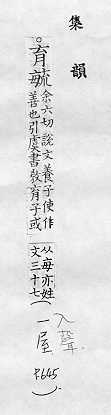 集韻
。育毓余六切說文養子使作
善也引虞書敎育子或
(从每亦姓
文三十七
入聲
一屋
P.645)